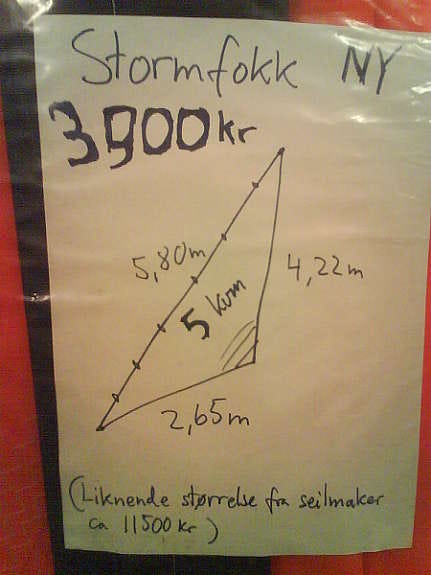 Stormfokk NY
3900 kr
5,80m
4,22m
5 kvm
2,65m
(Liknende størrelse fra seilmaker
ca 11500 kr)